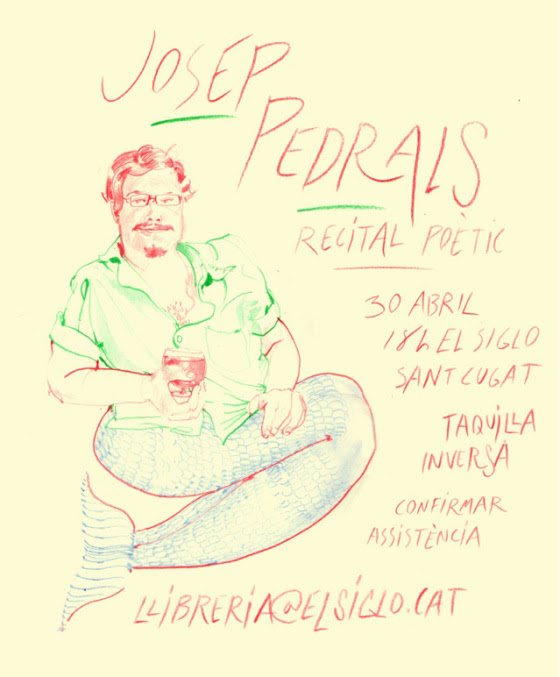 JOSEP
PEDRALS
RECITAL POÈTIC
30 ABRIL
18h EL SIGLO
SANT CUGAT
TAQUILLA
INVERSA
CONFIRMAR
ASSISTÈNCIA
LLIBRERIA@ELSIGLO.CAT